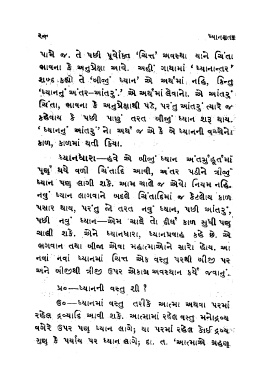 ૨૦ ધ્યાનશતક
પામે જ. તે પછી પૂર્વોક્ત ‘ચિત્ત’ અવસ્થા યાને ચિંતા
ભાવના કે અનુપ્રેક્ષા આવે. અહીં ગાથામાં ‘ધ્યાનાન્તર’
શબ્દ કહ્યો તે ‘બીજું ધ્યાન’ એ અર્થમાં નહિ, કિન્તુ
‘ધ્યાનનું અંતર-આંતરું.’ એ અર્થમાં લેવાનો. એ આંતરું
ચિંતા, ભાવના કે અનુપ્રેક્ષાથી પડે, પરંતુ આંતરું ત્યારે જ
કહેવાય કે પછી પાછું તરત બીજું ધ્યાન શરૂ થાય.
‘ધ્યાનનું આંતરું’નો અર્થ જ એ કે બે ધ્યાનની વચ્ચેનો
કાળ, કાળમાં થતી ક્રિયા.
ધ્યાનધારા—હવે એ બીજું ધ્યાન અંતર્મુહૂર્તમાં
પૂર્ણ થયે વળી ચિંતાદિ આવી, અંતર પડીને ત્રીજું
ધ્યાન પણ લાગી શકે. આમ ચાલે જ એવો નિયમ નહિ.
નવું ધ્યાન લાગવાને બદલે ચિંતાદિમાં જ કેટલોય કાળ
પસાર થાય, પરંતુ જો તરત નવું ધ્યાન, પછી આંતરું,
પછી નવું ધ્યાન—એમ ચાલે તો દીર્ઘ કાળ સુધી પણ
ચાલી શકે. એને ધ્યાનધારા, ધ્યાનપ્રવાહ કહે છે. એ
ભગવાન તથા બીજા એવા મહાત્માઓને સારો હોય. આ
નવાં નવાં ધ્યાનમાં ચિત્ત એક વસ્તુ પરથી બીજી પર
અને બીજીથી ત્રીજી ઉપર એકાગ્ર અવસ્થાન કર્યે જવાનું.
પ્ર૦—ધ્યાનની વસ્તુ શી ?
ઉ૦—ધ્યાનમાં વસ્તુ તરીકે આત્મા અથવા પરમાં
રહેલ દ્રવ્યાદિ આવી શકે. આત્મામાં રહેલ વસ્તુ મનોદ્રવ્ય
વગેરે ઉપર પણ ધ્યાન લાગે; યા પરમાં રહેલ કોઈ દ્રવ્ય
ગુણ કે પર્યાય પર ધ્યાન લાગે; દા. ત. ‘આત્માએ ગ્રહણ